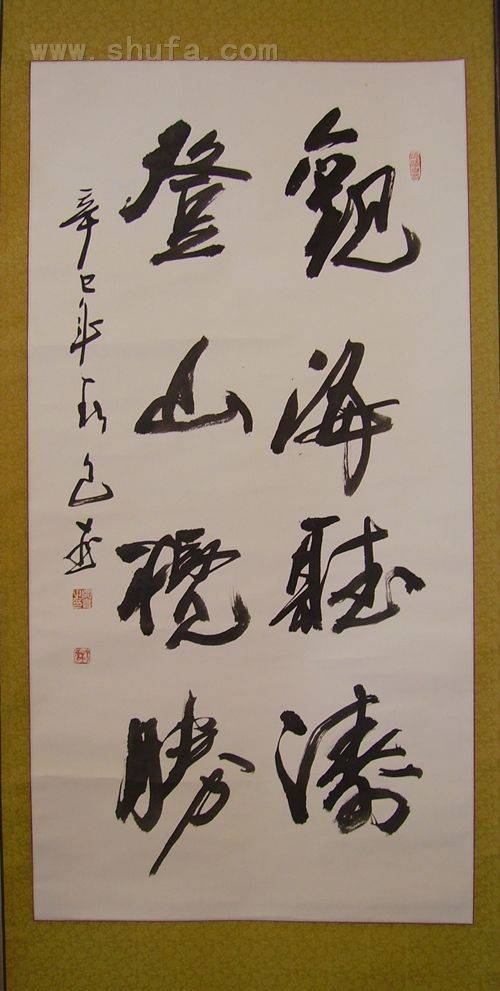 www.shufa.com
觀海聽濤
登山攬勝
辛巳年